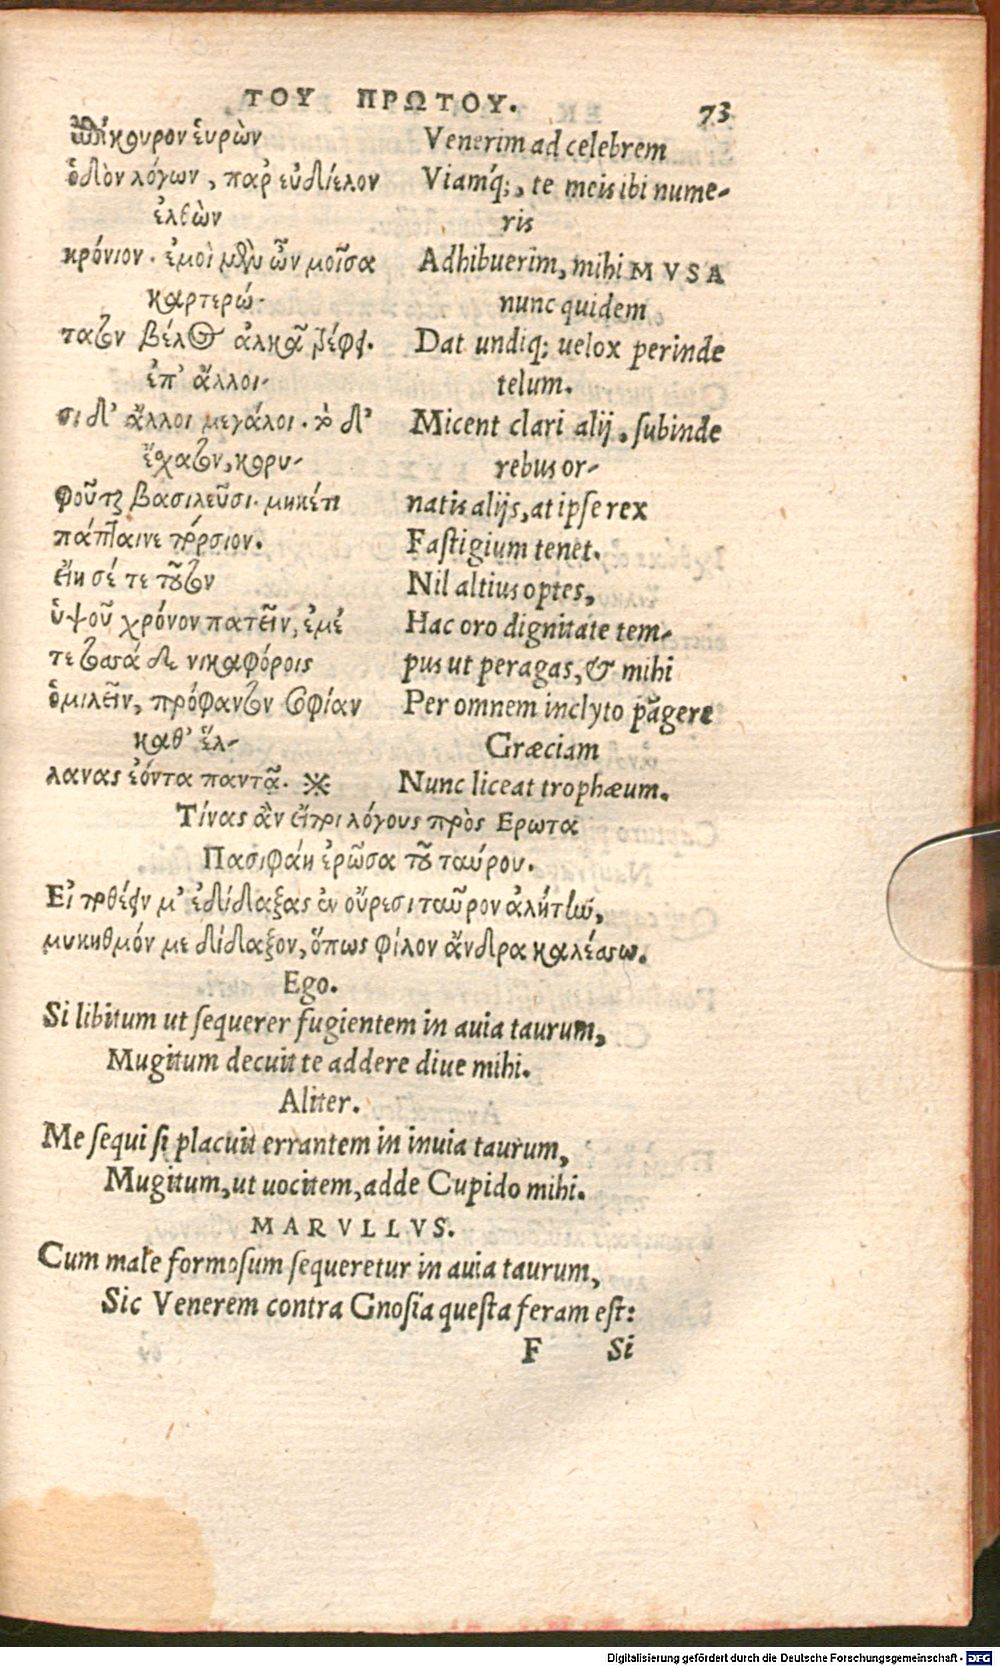 ΤΟΥ ΠΡΩΤΟΥ. 73
ἐπίκουρον εὑρὼν Venerim ad celebrem
ὁδὸν λόγων, παρ' εὐδίελον Viamq́;, te meis ibi nume-
ἐλθὼν ris
κρόνιον. ἐμοὶ μὲν ὦν μοῖσα Adhibuerim, mihi MVSA
καρτερώ- nunc quidem
τατον βέλος ἀλκᾷ τρέφει. Dat undiq; uelox perinde
ἐπ' ἄλλοι- telum.
σι δ' ἄλλοι μεγάλοι. τὸ δ' Micent clari alij, subinde
ἔχατον, κορυ- rebus or-
φοῦται βασιλεῦσι. μηκέτι natis alijs, at ipse rex
πάπταινε πόρσιον. Fastigium tenet.
εἴη σέ τε τοῦτον Nil altius optes,
ὑψοῦ χρόνον πατεῖν, ἐμέ Hac oro dignitate tem-
τε τοσσά δε νικαφόροις pus ut peragas, & mihi
ὁμιλεῖν, πρόφαντον σοφίαν Per omnem inclyto p̃agere
καθ' ἕλ- Græciam
λανας ἐόντα παντᾷ. ※ Nunc liceat trophæum.
Τίνας ἂν εἴποι λόγους πρὸς Ερωτα
Πασιφάη ἐρῶσα τοῦ ταύρου.
Εἰ ποθέειν μ' ἐδίδαξας ἐν οὔρεσι ταῦρον ἀλήτην,
μυκηθμόν με δίδαξον, ὅπως φίλον ἄνδρα καλέσσω.
Ego.
Si libitum ut sequerer fugientem in auia taurum,
Mugitum decuit te addere diue mihi.
Aliter.
Me sequi si placuit errantem in inuia taurum,
Mugitum, ut uocitem, adde Cupido mihi.
MARVLLVS.
Cum male formosum sequeretur in auia taurum,
Sic Venerem contra Gnosia questa feram est:
F Si
Digitalisierung gefördert durch die Deutsche Forschungsgemeinschaft - DFG